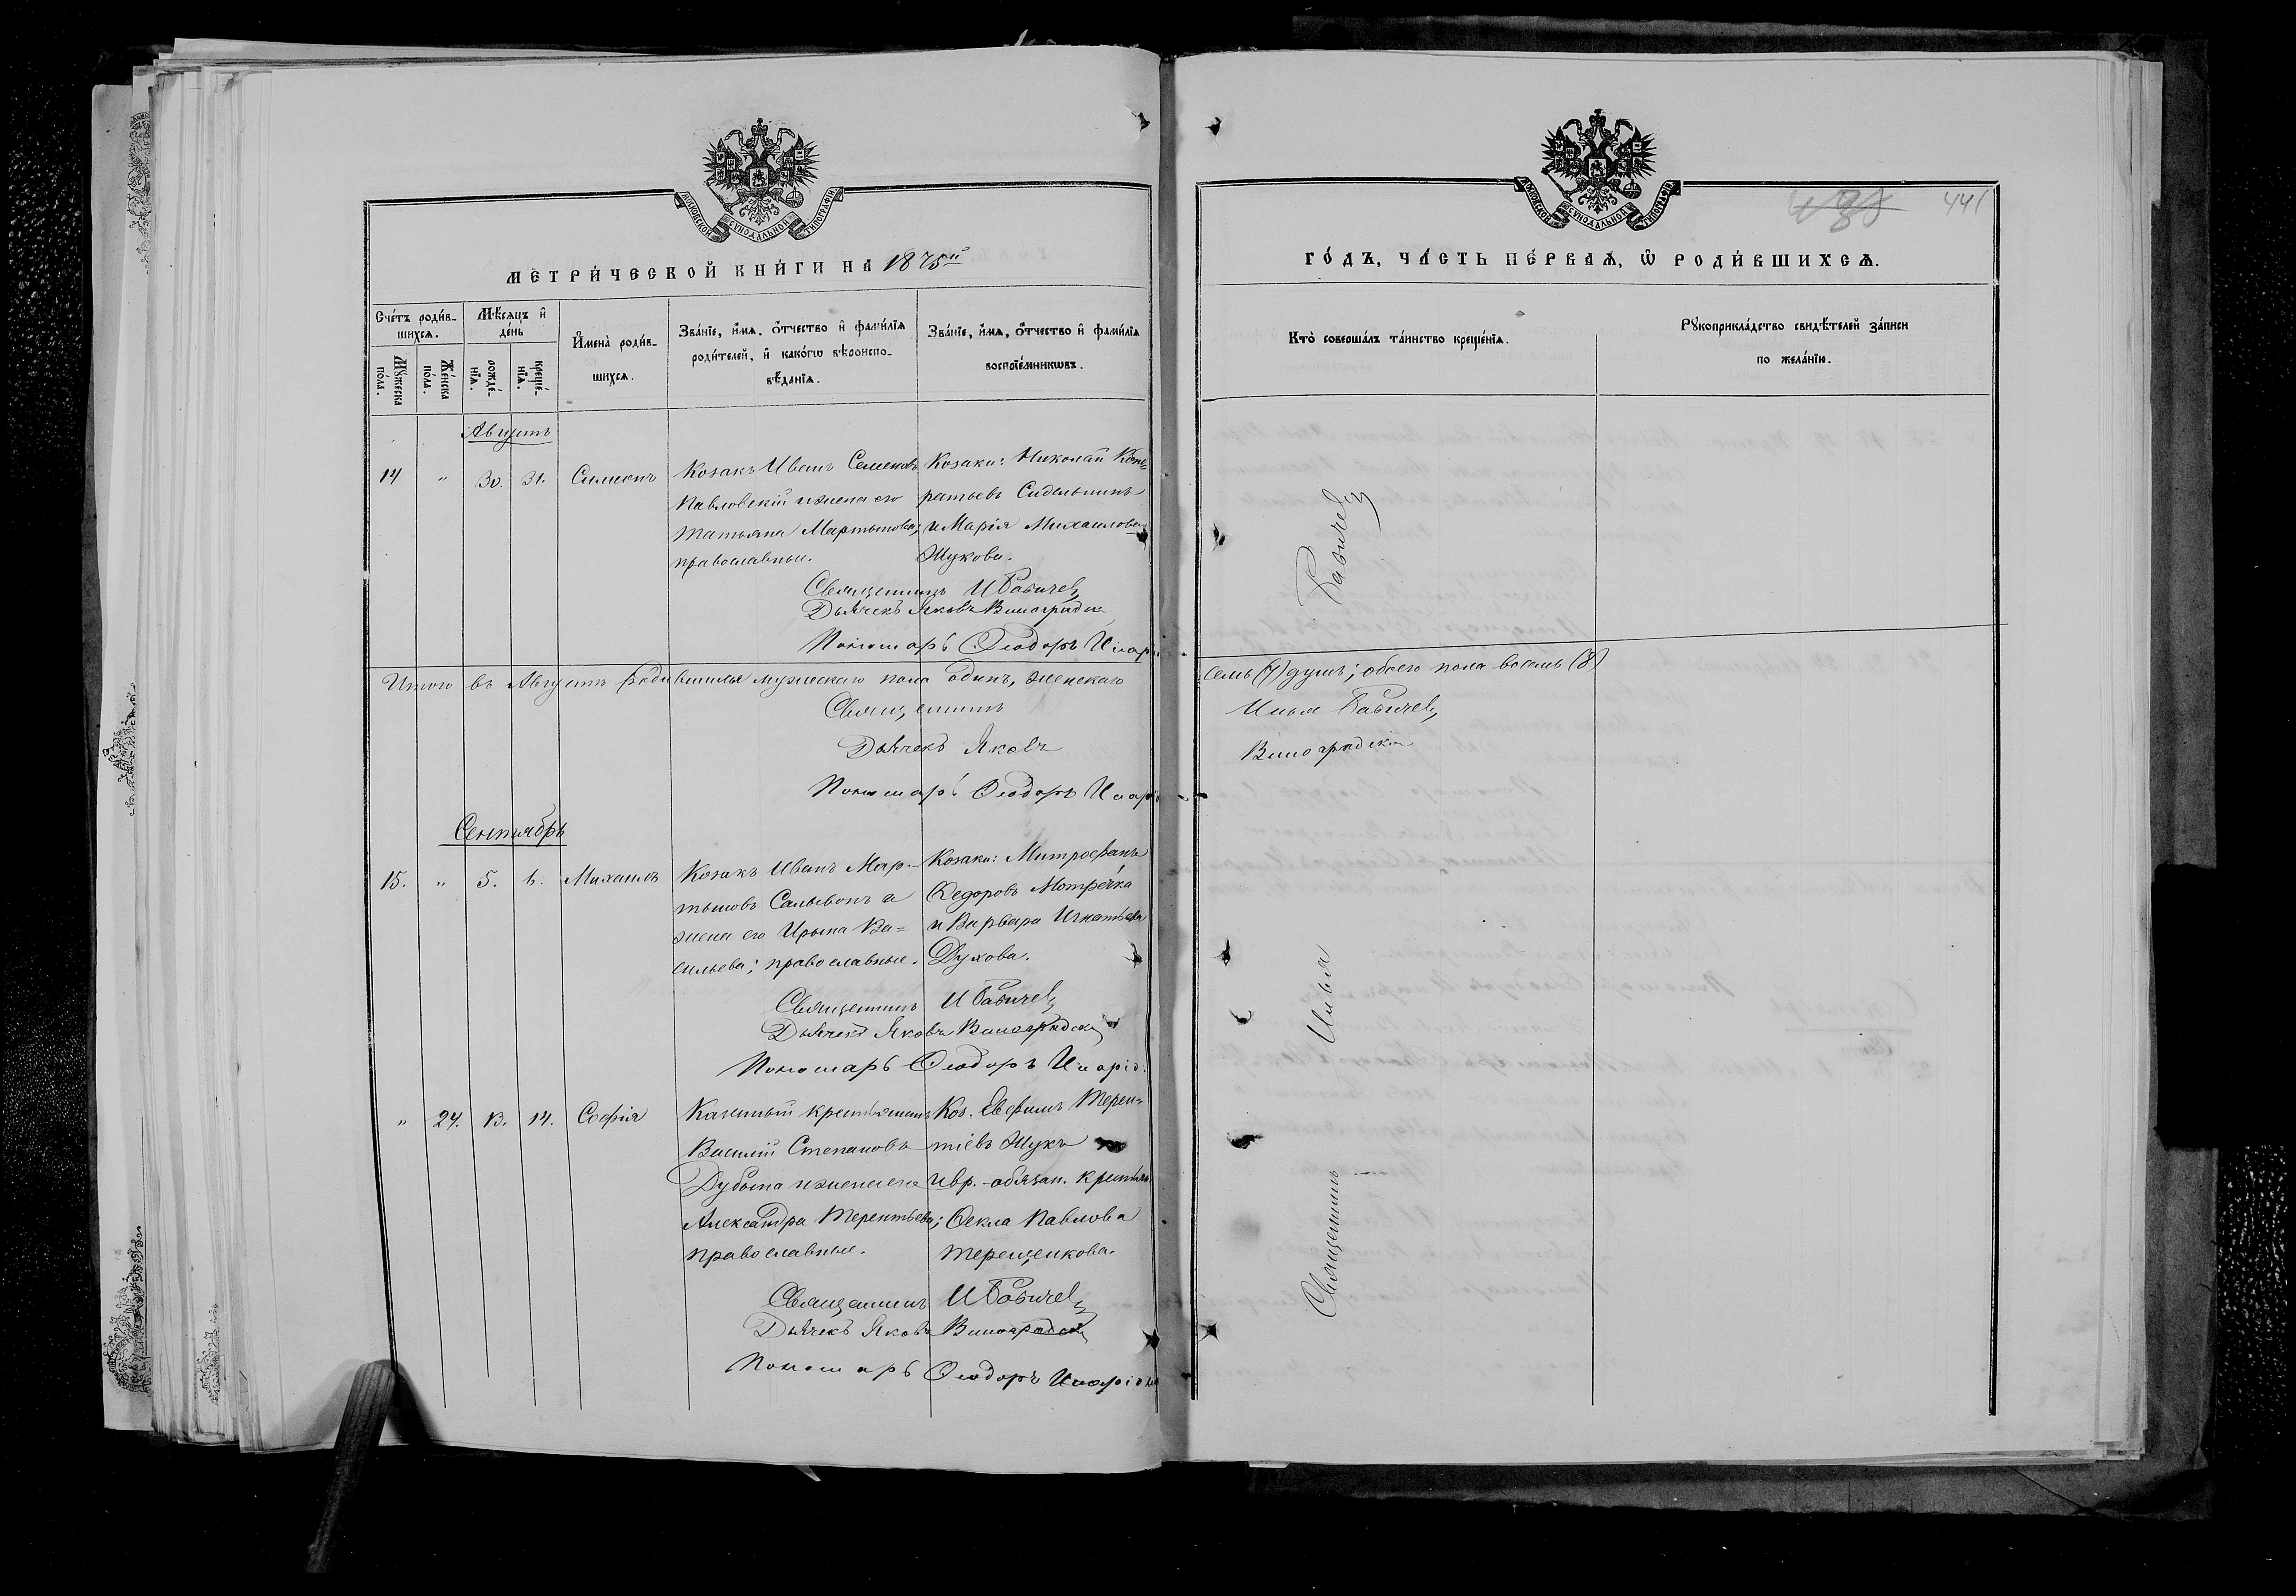 МОСКОВСКОЙ СѴНОДАЛЬНОЙ ТИПОГРАФІИ
МЕТРИ́ЧЕСКОЙ КНИ́ГИ НА 1875й
Сче́тъ роди́в-
шихсѧ.
Мѣ́сѧцъ и҆
де́нь
Мꙋ́жеска по́ла.
Же́нска по́ла.
рожде́-
нїѧ.
креще́-
нїѧ.
И҆мена̀ роди́в-
шихсѧ.
Зва́нїе, и҆́мѧ, ѻ҆́тчество и҆ фами́лїѧ
роди́телей, и҆ како́гѡ вѣроиспо-
вѣ́данїѧ.
Зва́нїе, и҆́мѧ, ѻ҆́тчество и҆ фами́лїѧ
воспрїе́мникѡвъ.
Августъ
14 " 30. 31. Симеонъ
Козакъ Иванъ Семеновъ
Павловскій и жена его
Татьяна Мартынова;
православные.
Козаки: Николай Конд-
ратьевъ Сидельникъ
и Марія Михаилова
Жукова.
Священникъ И Бабичев
Дьячекъ Яковъ Виноградск
Пономарь Ѳеодоръ
Итого въ Августѣ родившихся мужескаго пола одинъ, женскаго
Священникъ
Дьячекъ Яковъ
Пономарь Ѳеодоръ
Сентябрь
15. " 5. 6. Михаилъ
Козакъ Иванъ Мар-
тыновъ Салывонъ и
жена его Ирына Ва=
сильева; православные.
Козаки: Митрофанъ
Ѳедоровъ Мотречка
и Варвара Игнатьева
Духова.
Священникъ И Бабичев
Дьячекъ Яковъ Виноградск
Пономарь Ѳеодоръ
" 24. 13. 14. Софія
Казенный крестьянинъ
Василій Степановъ
Дубына и жена его
Александра Терентьева;
православные.
Коз. Евфимъ Терен=
тіевъ Жукъ
и вр.-обязан. крестьян.
Ѳекла Павлова
Терещенкова.
Священникъ И Бабичев
Дьячекъ Яковъ Виноградск
Пономарь Ѳеодоръ
МОСКОВСКОЙ СѴНОДАЛЬНОЙ ТИПОГРАФІИ
441
ГО́ДЪ, ЧА́СТЬ ПЕ́РВАѦ, Ѡ҆ РОДИ́ВШИХСѦ.
Кто̀ соверша́лъ та́инство креще́нїѧ.
Рꙋкоприкла́дство свидѣ́телей за́писи
по жела́нїю.
семь (7) душъ; обоего пола восемь (8)
Илья Бабичев
Виноградск
Священникъ Илья Бабичев